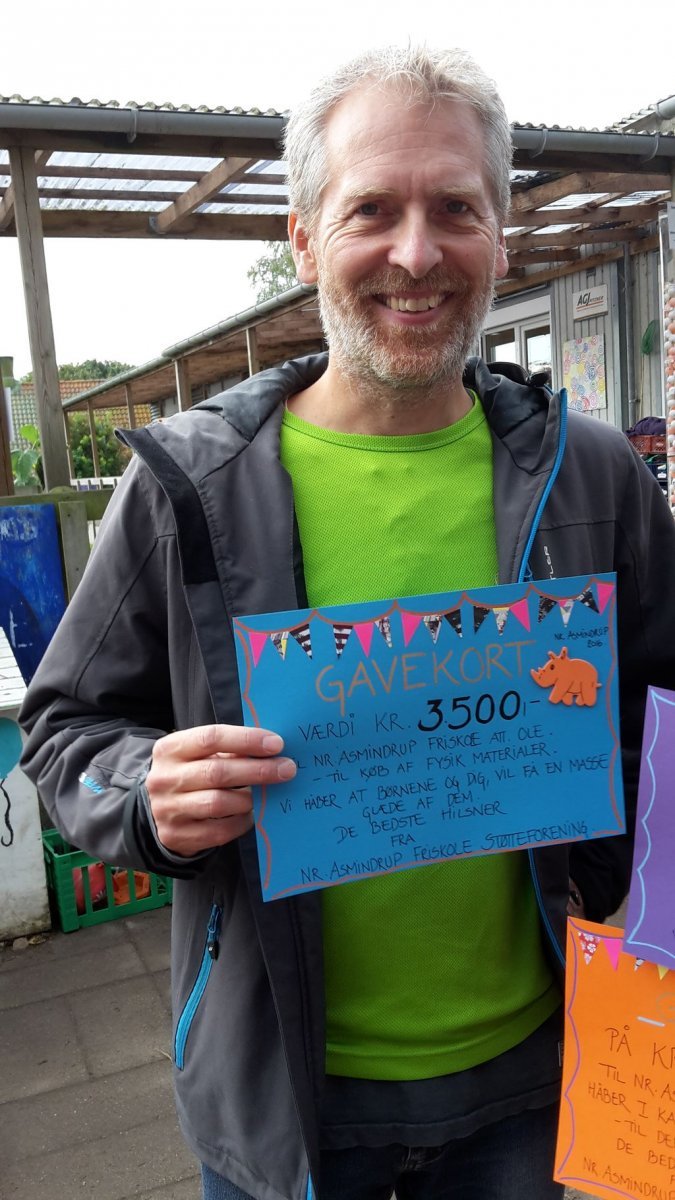 AGJ
NR. ASMINDRUP
2016
GAVEKORT
VÆRDI KR. 3.500,-
TIL NR. ASMINDRUP FRISKOE ATT. OLE.
- TIL KØB AF FYSIK MATERIALER.
VI HÅBER AT BØRNENE OG DIG, VIL FÅ EN MASSE
GLÆDE AF DEM.
DE BEDSTE HILSNER
FRA
NR. ASMINDRUP FRISKOLE STØTTEFORENING
PÅ KR
TIL NR. AS
HÅBER I KA
- TIL DE
DE BED
F
NR. ASMINDRUP